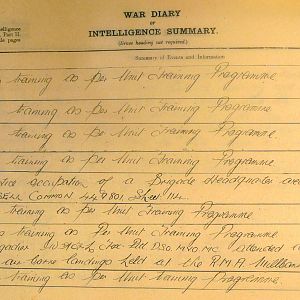 Intelligence
Part II.
pages
WAR DIARY
OF
INTELLIGENCE SUMMARY.
(Erase heading not required.)
Summary of Events and Information
training as per Unit Training Programme
training as per Unit Training Programme.
training as per Unit Training Programme.
training as per Unit Training Programme.
occupation of a Brigade Headquarters
COMMON 449801. Sheet 114.
training as per Unit Training Programme
training as Per Unit Training Programme
DSO MVO MC attended
air borne landings held at the R.M.A.
training as per Unit Training Programme.